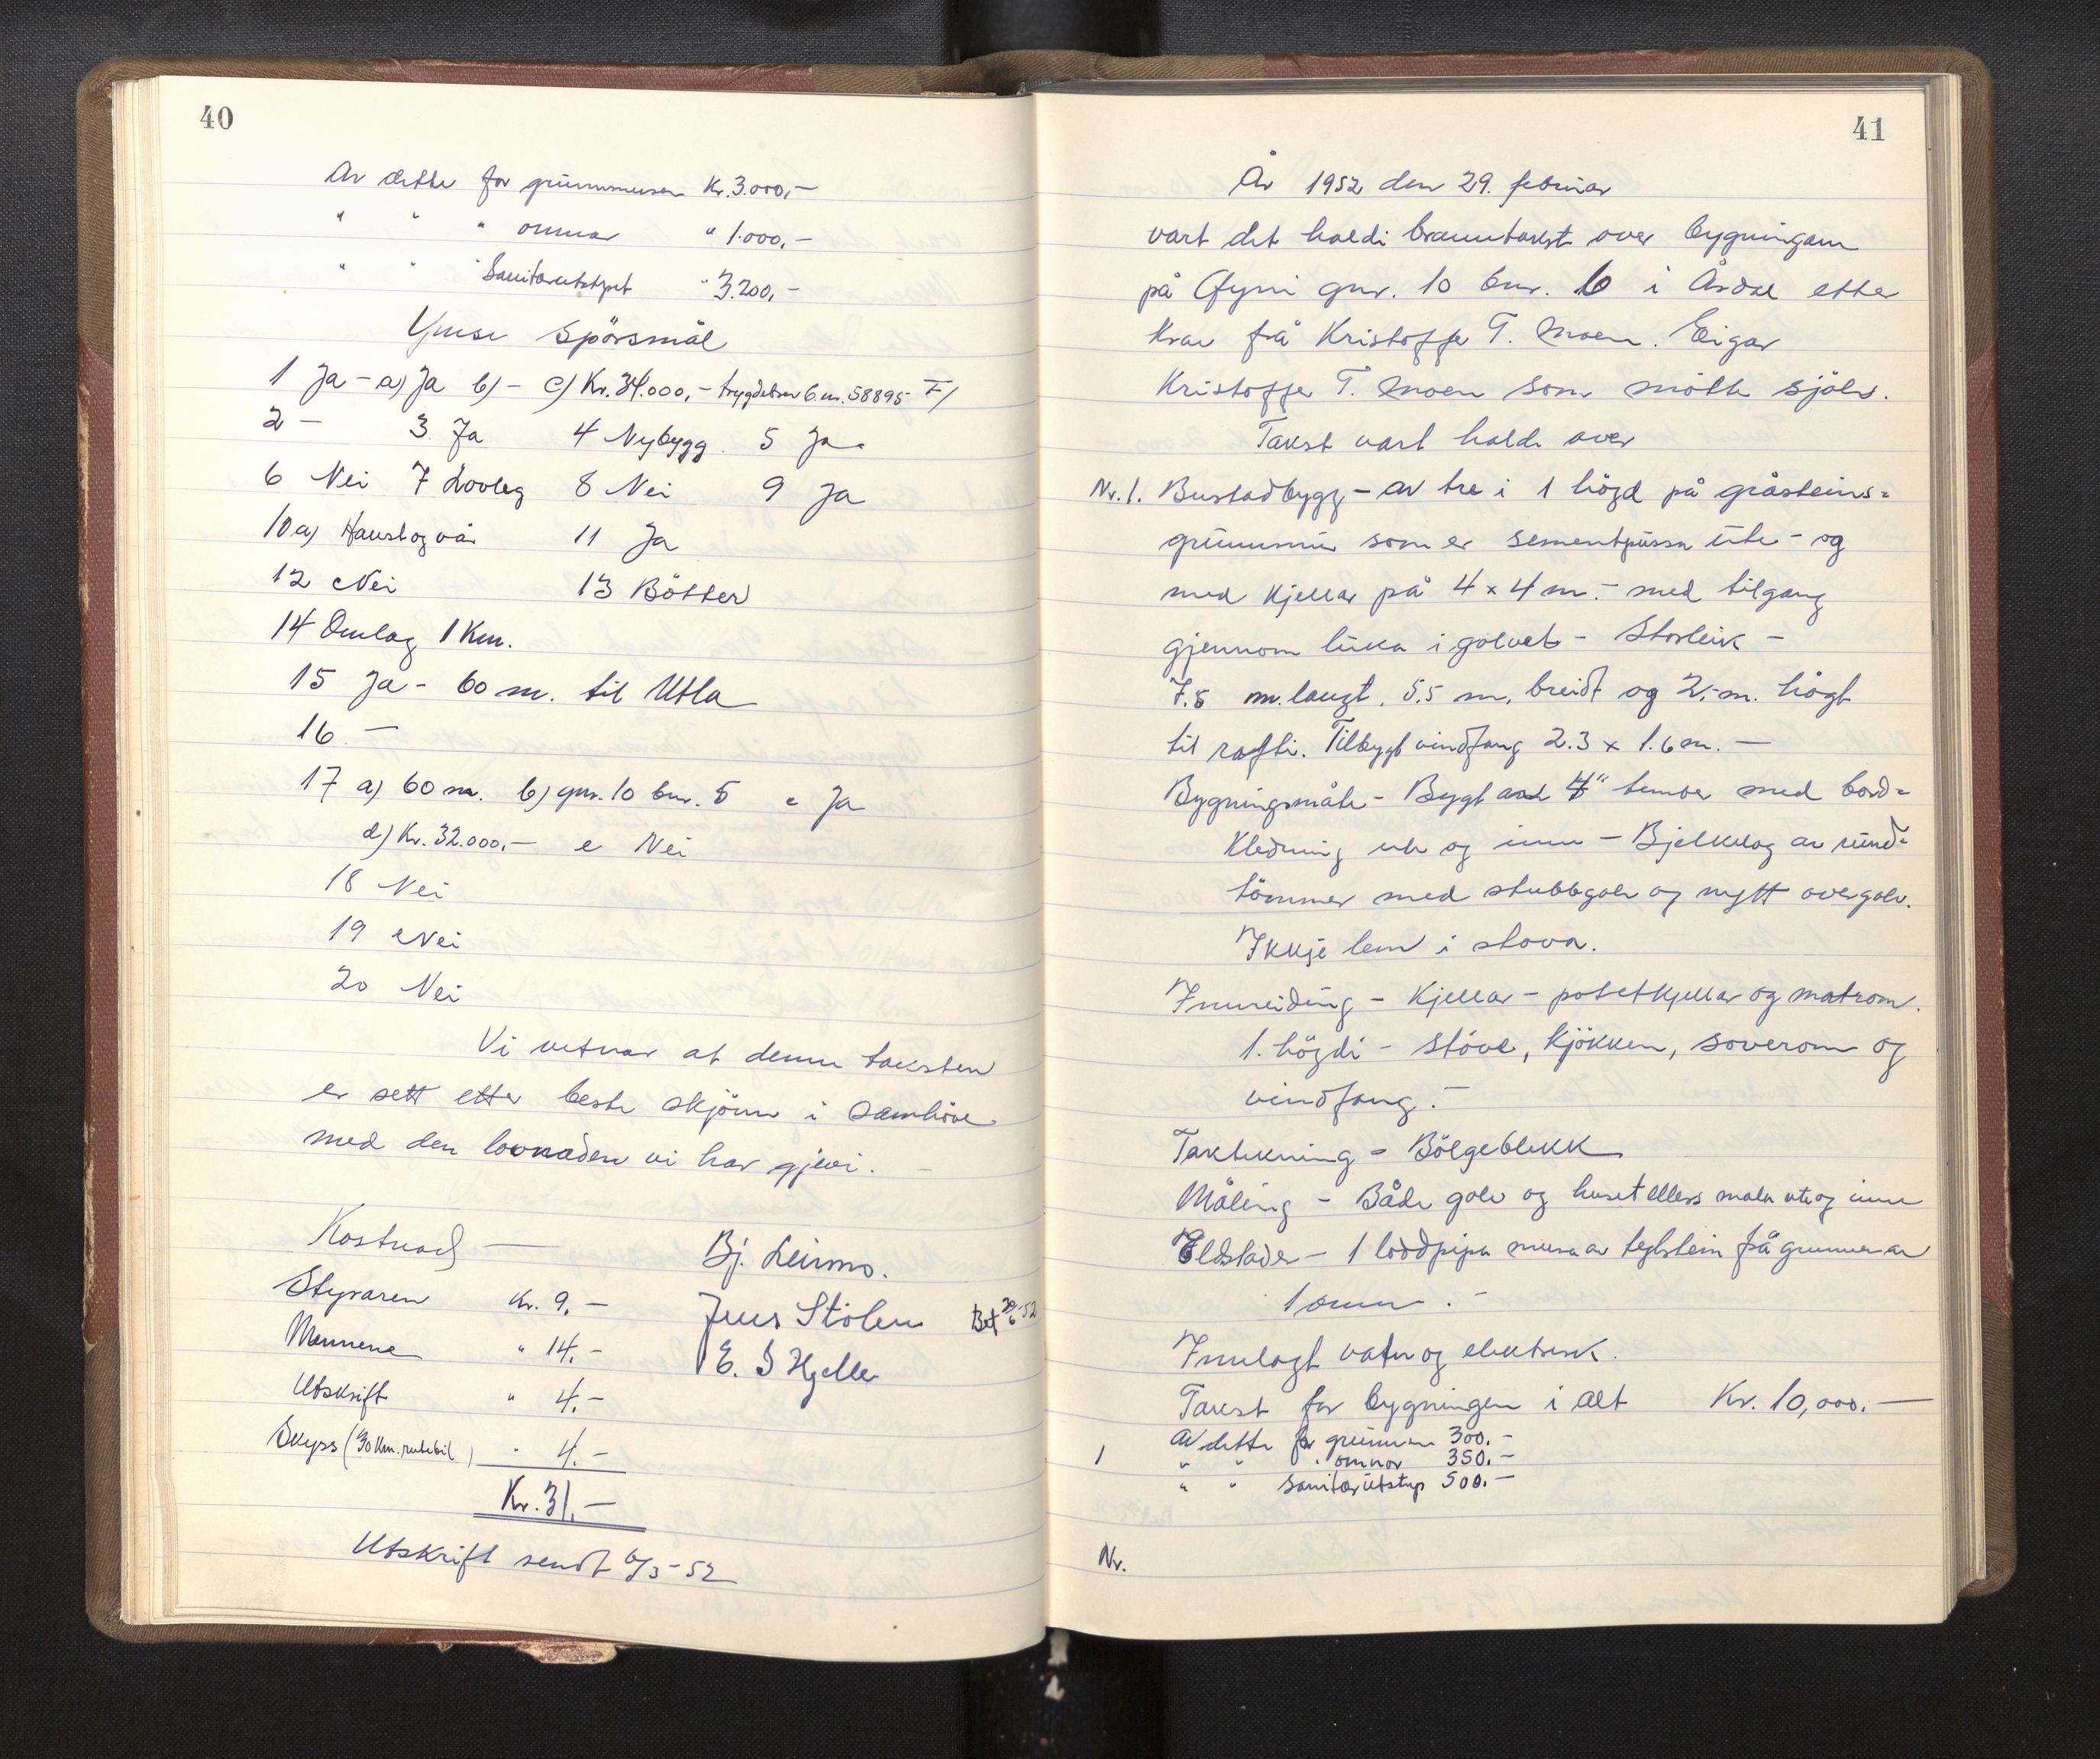 40
Av dette for grunnmuren Kr. 3.000,-
" " " omnar " 1.000,-
" " " Sanitærutstyret " 3.200,-
Ymse spörsmål
1 Ja - a) Ja b) - c) Kr. 34.000,- trygdebrev b.nr. 58895 F/
2 - 3 Ja 4 Nybygg 5 Ja.
6 Nei 7 Lovleg 8 Nei 9 Ja
10 a) Haust og vår 11 Ja
12 Nei 13 Bötter
14 Omlag 1 Km.
15 Ja - 60 m. til Utla
16 -
17 a) 60 m. b) gnr. 10 bnr. 5 c Ja
d) Kr. 32.000,- e Nei
18 Nei
19 Nei
20 Nei
Vi vitnar at denne taksten
er sett etter beste skjönn i samhöve
med den lovnaden vi har gjevi. -
Kostnad -
Styraren Kr. 9,-
Mennene " 14,-
Utskrift " 4,-
Skyss (30 Km. rutebil) " 4,-
Kr. 31,-
Bj. Leirmo.
Jens Stölen Bet 30/6-52
E. S Hjelle
Utskrift sendt 6/3-52
41
År 1952 den 29. februar
vart det haldi branntakst over bygningane
på gnr. 10 bnr. 6 i Årdal etter
krav frå Kristoffer T. Moen. Eigar
Kristoffer T. Moen som mötte sjölv.
Takst vart halde over
Nr. 1. Bustadbygg - av tre i 1 högd på gråsteins=
grunnmur som er sementpussa ute - og
med kjellar på 4 x 4 m. - med tilgang
gjennom luka i golvet - Storleik -
7.5 m. langt, 5.5 m. breidt og 2,- m. högt
til rafti. Tilbygt vindfang 2.3 x 1.6 m. -
Bygningsmåte - Bygt av 4" tember med bord=
kledning ute og inne - Bjelkelag av rund=
tömmer med stubbgolv og nytt overgolv.
Ikkje lem i stova.
Innreiding - Kjellar - potetkjellar og matrom.
1. högdi - stove, kjökken, soverom og
vindfang. -
Taktekning = Bölgeblekk
Måling - Både golv og huset ellers mala ute og inne
Eldstader - 1 loddpipa mura av teglstein frå grunnen av
1 omn. -
Innlagt vatn og elektrisk.
Takst for bygningen i alt Kr. 10,000.-
Av dette for grunnmuren 300.-
1 " " " omnar 350.-
" " sanitærutstyr 500.-
Nr.